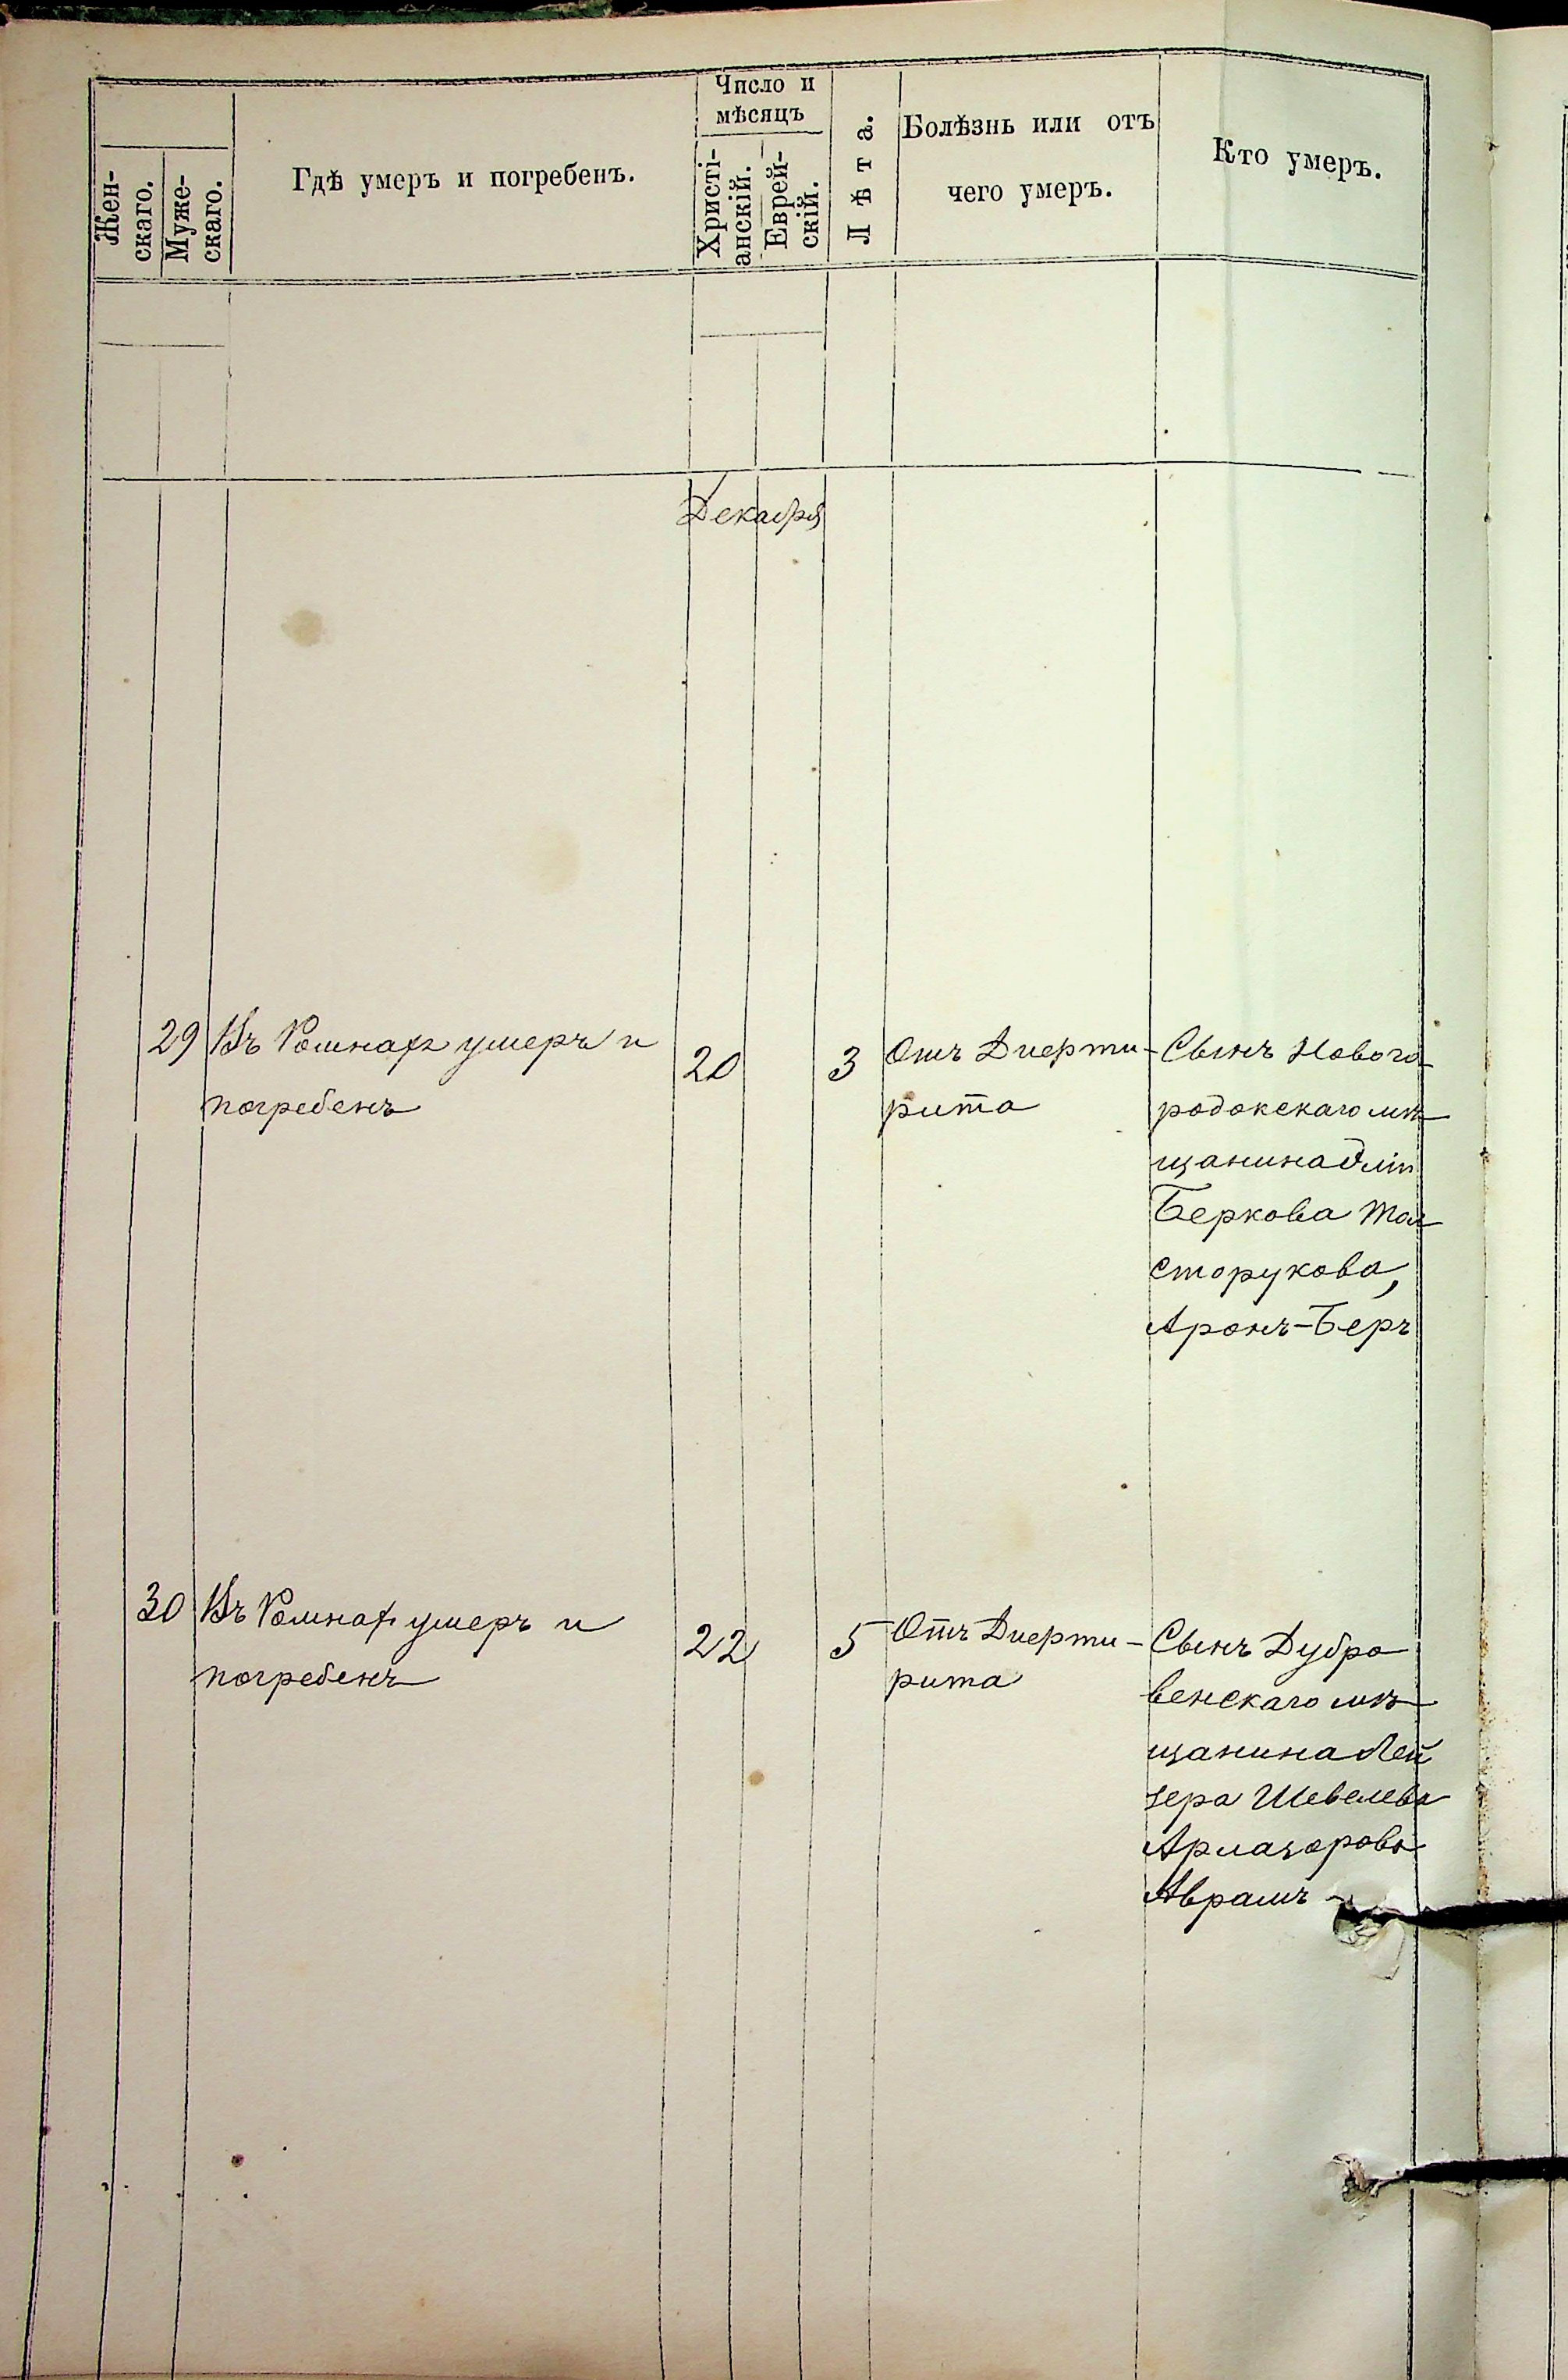 Жен-
скаго.
Муже-
скаго.
Гдѣ умеръ и погребенъ.
Число и
мѣсяцъ
Христі-
анскій.
Еврей-
скій.
Лѣта.
Болѣзнь или отъ
чего умеръ.
Кто умеръ.
Декабря
29 Въ Ромнахъ умеръ и
погребенъ
20
3
Отъ Диерти-
рита
Сынъ Нового
родокскаго мѣ
щанина
Беркова Тол
сторукова,
Аронъ-Беръ
30 Въ Ромнах умеръ и
погребенъ
22
5
Отъ Диерти-
рита
Сынъ Дубро
венскаго мѣ
щанина Лей
зера Шевелева
Аврамъ